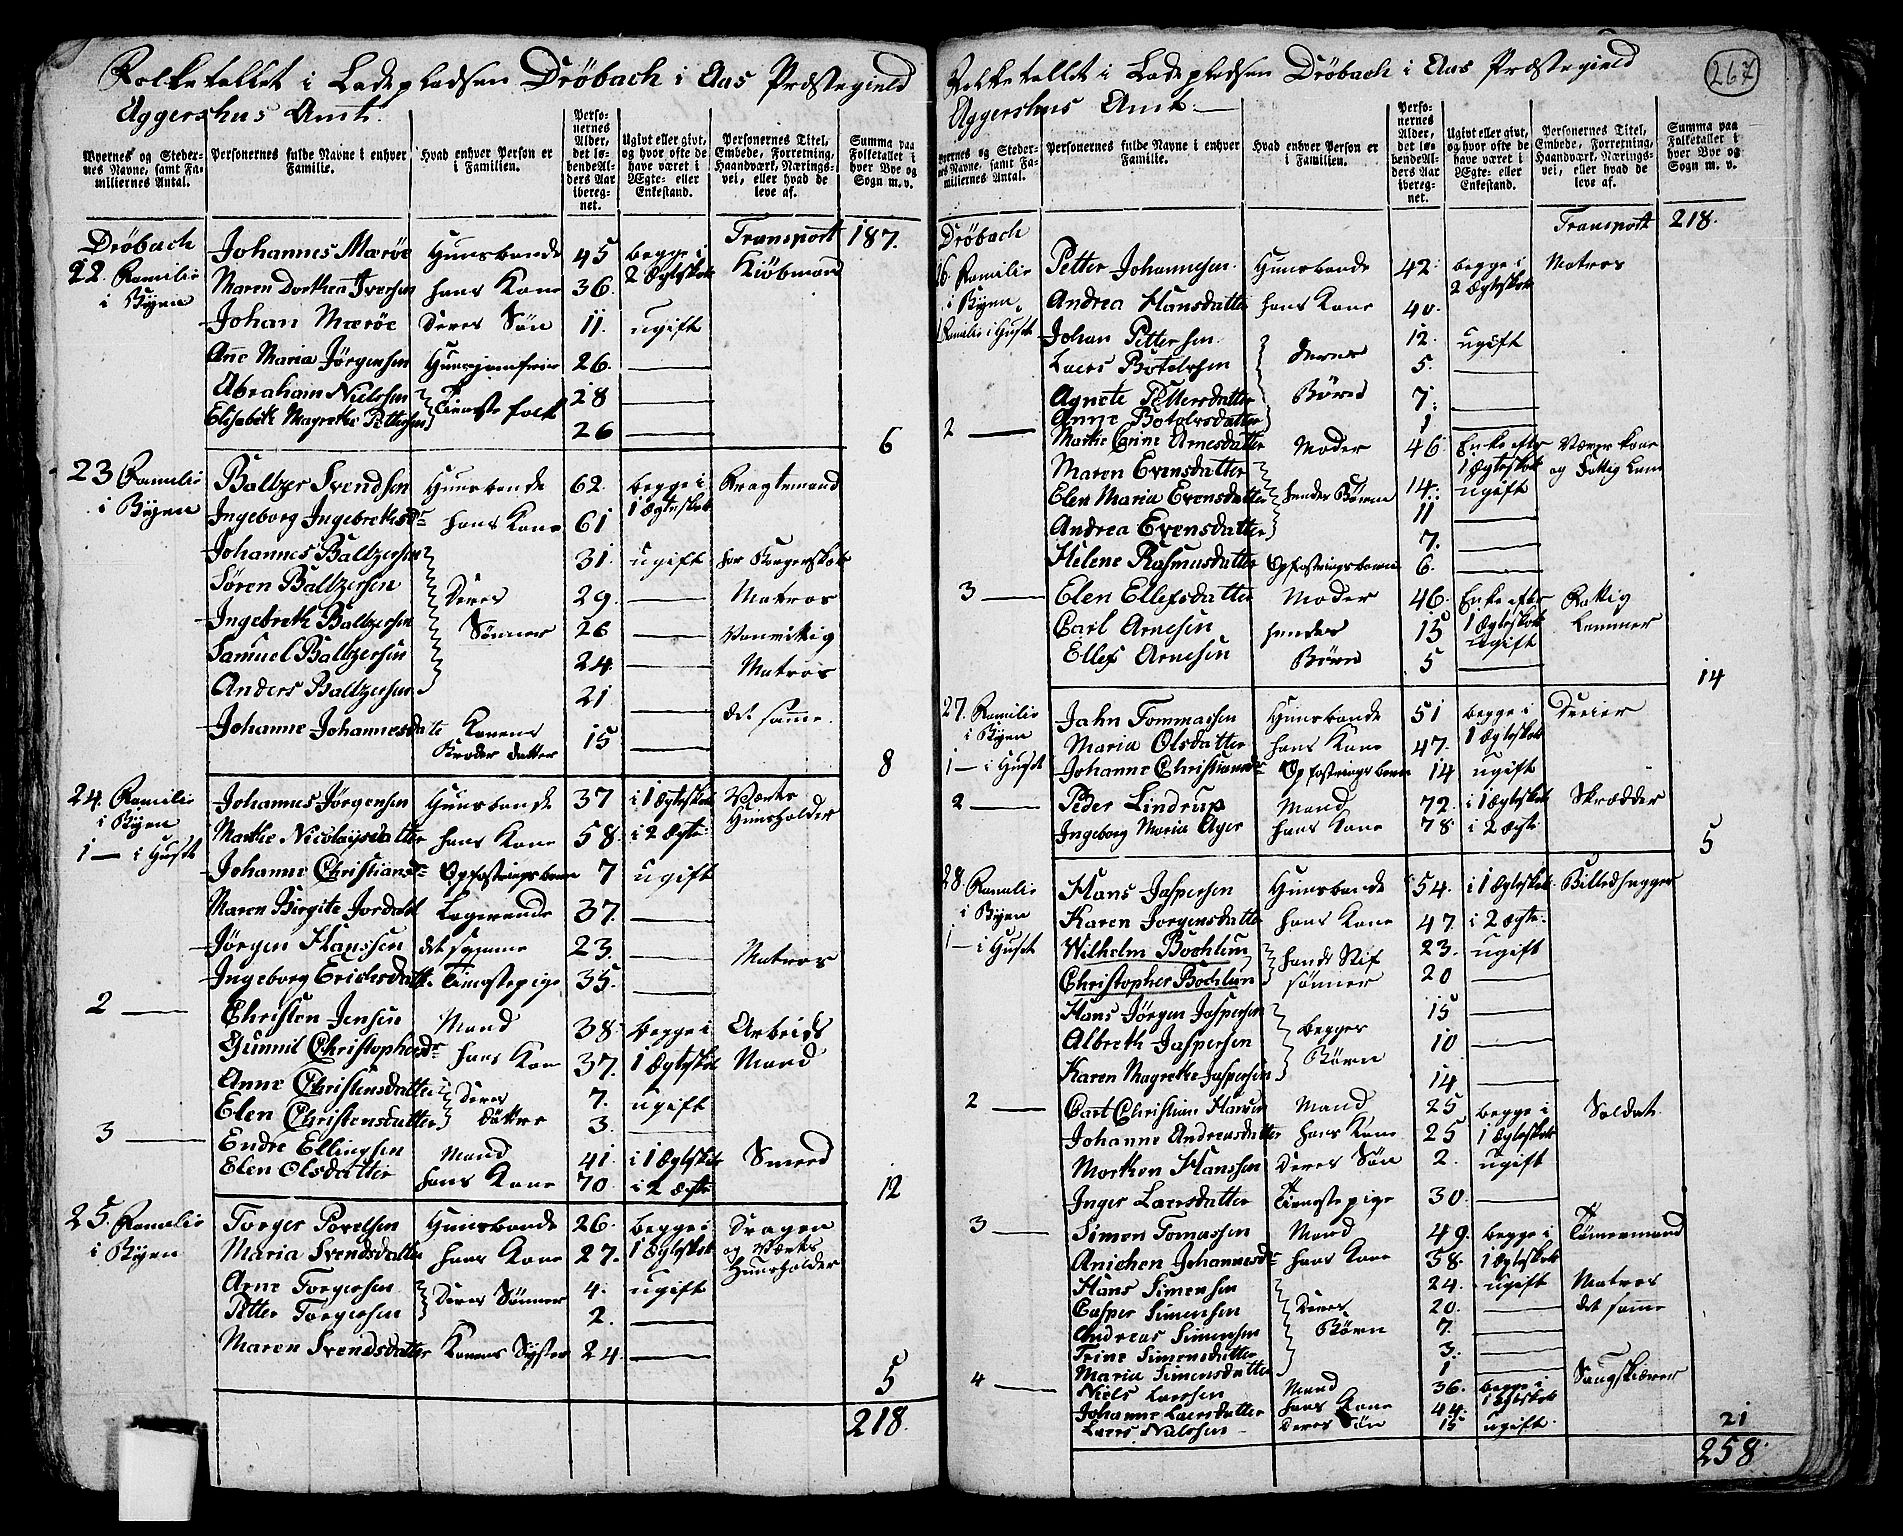 Folketallet i Ladepladsen Drøbach i Aas Præstegield
Aggershus Amt.
Byernes og Stedernes Navne, samt Familiernes Antal.
Personernes fulde Navne i enhver Familie.
Hvad enhver Person er i Familien.
Personernes Alder, det løbende Alders Aar iberegnet.
Ugivt eller givt, og hvor ofte de have været i Ægte- eller Enkestand.
Personernes Titel, Embede, Forretning, Haandværk, Næringsvei, eller hvad de leve af.
Summa paa Folketallet i hver Bye og Sogn m. v.
Transport 187.
Drøbach
22. Familie i Byen
Johannes Mærøe Huusbonde 45 begge i 2 Ægteskab Kiøbmand
Maren Dorthea Iversen hans Kone 36.
Johan Mærøe Deres Søn 11. ugift
Anne Maria Jørgensen Huusjomfrue 26. —
Abraham Nielssen Tieneste folk 28 —
Elisabeth Magrethe Pettersen 26 —
6
23 Familie i Byen
Baltzer Svendsen Huusbonde 62. begge i 1 Ægteskab Fragtemand
Ingeborg Ingebrethsdr hans Kone 61
Johannes Baltzersen 31. ugift har Borgerskab
Søren Baltzersen Deres 29. — Matros
Ingebreth Baltzersen Sønner 26 — Vanvittig
Samuel Baltzersen 24. — Matros
Anders Baltzersen 21. — det samme.
Johanne Johannesdatte Konens Broder datter 15 —
8
24. Familie i Byen
1 — i Huset
Johannes Jørgensen Huusbonde 37 i 1 Ægteskab Værts Huusholder
Marthe Nicolaysdatter hans Kone 58. i 2 Ægte
Johanne Christiansdr Opfostringsbarn 7 ugift
Maren Birgite Jordahl Logerende 37. —
Jørgen Hanssen det samme 23. — Matros
Ingeborg Erichsdatt. Tienestepige 35. —
2 — Christen Jensen Mand 38. begge i Arbeids
Gunnil Christophersdr hans Kone 37. 1 Ægteskab Mand
Anne Christensdatter Deres 7. ugift
Elen Christensdatter døttre 3. —
3 — Endre Ellingsen Mand 41. i 1 Ægteskab Smed
Elen Olsdatter hans Kone 70. i 2 Ægte
12
25. Familie i Byen
Torger Povelsen Huusbonde 26. begge i Dragon
Maria Svendsdatter hans Kone 27. 1 Ægteskab og Værts Huusholder
Arne Torgersen Deres Sønner 4. ugift
Petter Torgersen 2. —
Maren Svendsdatter Konens Syster 24. —
5
218.
267
Folketallet i Ladepladsen Drøbach i Aas Præstegield
Aggershus Amt. —
Byernes og Stedernes Navne, samt Familiernes Antal.
Personernes fulde Navne i enhver Familie.
Hvad enhver Person er i Familien.
Personernes Alder, det løbende Alders Aar iberegnet.
Ugivt eller givt, og hvor ofte de have været i Ægte- eller Enkestand.
Personernes Titel, Embede, Forretning, Haandværk, Næringsvei, eller hvad de leve af.
Summa paa Folketallet i hver Bye og Sogn m. v.
Transport 218.
Drøbach
26. Familie i Byen
1 Familie i Huset
Petter Johannesen Huusbonde 42. begge i 2 Ægteskab Matros
Andrea Hansdatter hans Kone 40.
Johan Pettersen Deres 12. ugift
Laers Botolvsen 5. —
Agnete Pettersdatter Børn 7. —
Anne Botolvsdatter 1 —
2 — Marthe Carine Arnesdatter Moder 46. Enke efter 1 Ægteskab Væver kone og Fattig Lem
Maren Evensdatter hendes Børn 14. ugift
Elen Maria Evensdatter 11 —
Andrea Evensdatter 7. —
Helene Rasmusdatter Opfostringsbarn 6. —
3 — Elen Ellefsdatter Moder 46. Enke efter 1 Ægteskab Fattig
Carl Arnesen hendes 15 ugift Lemmer
Ellef Arnesen Børn 5 —
14
27. Familie i Byen
1 — i Huset
Jahn Tommassen Huusbonde 51 begge i 1 Ægteskab Dreier
Maria Olsdatter hans Kone 47.
Johanne Christiansdr Opfostrings barn 14 ugift
2 — Peder Lindrup Mand 72. i 1 Ægteskab Skrædder
Ingeborg Maria Ager hans Kone 78. i 2 Ægte
5
28. Familie i Byen
1 — i Huset
Hans Jaspersen Huusbonde 54. i 1 Ægteskab Billedhugger
Karen Jorgensdatter hans Kone 47. i 2 Ægte.
Wilhelm Bochlum hands Stif 23. ugift
Christopher Bochlum sønner 20 —
Hans Jørgen Jaspersen begges 15 —
Albreth Jaspersen Børn 10 —
Karen Magrethe Jaspersen 14 —
2 — Carl Christian Hansen Mand 25 begge i Soldat
Johanne Andreasdatter hans Kone 25 1 Ægteskab
Morthen Hanssen Deres Søn 2. ugift
Inger Laersdatter Tienestepige 30. —
3 — Simen Tomassen Mand 49. begge i Tømmermand
Anichen Johannesdr hans Kone 58. 1 Ægteskab
Hans Simensen Deres 24. ugift Matros
Casper Simensen Børn 20. — det samme
Andreas Simensen 7. —
Trine Simensdatter 3. —
Maria Simensdatter 1 —
4 — Niels Larssen Mand 36. begge i Saugskiærer
Johanne Laersdatter hans Kone 44. 1 Ægteskab
Laers Nielssen Deres Søn 15 ugift.
21
258.